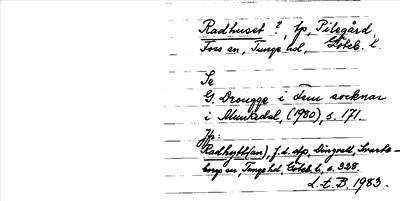 Radhuset ?, tp, Pilegård,
Foss sn, Tunge hd, Göteb. l.
Se
G. Drougge i Fem socknar
i Munkedal, (1980), s. 171.
Jfr:
Radhyttan), f.d. stp, Dingvall, Svarte-
borg sn, Tunge hd, Göteb. l., s. 328.
L.t.B. 1983.